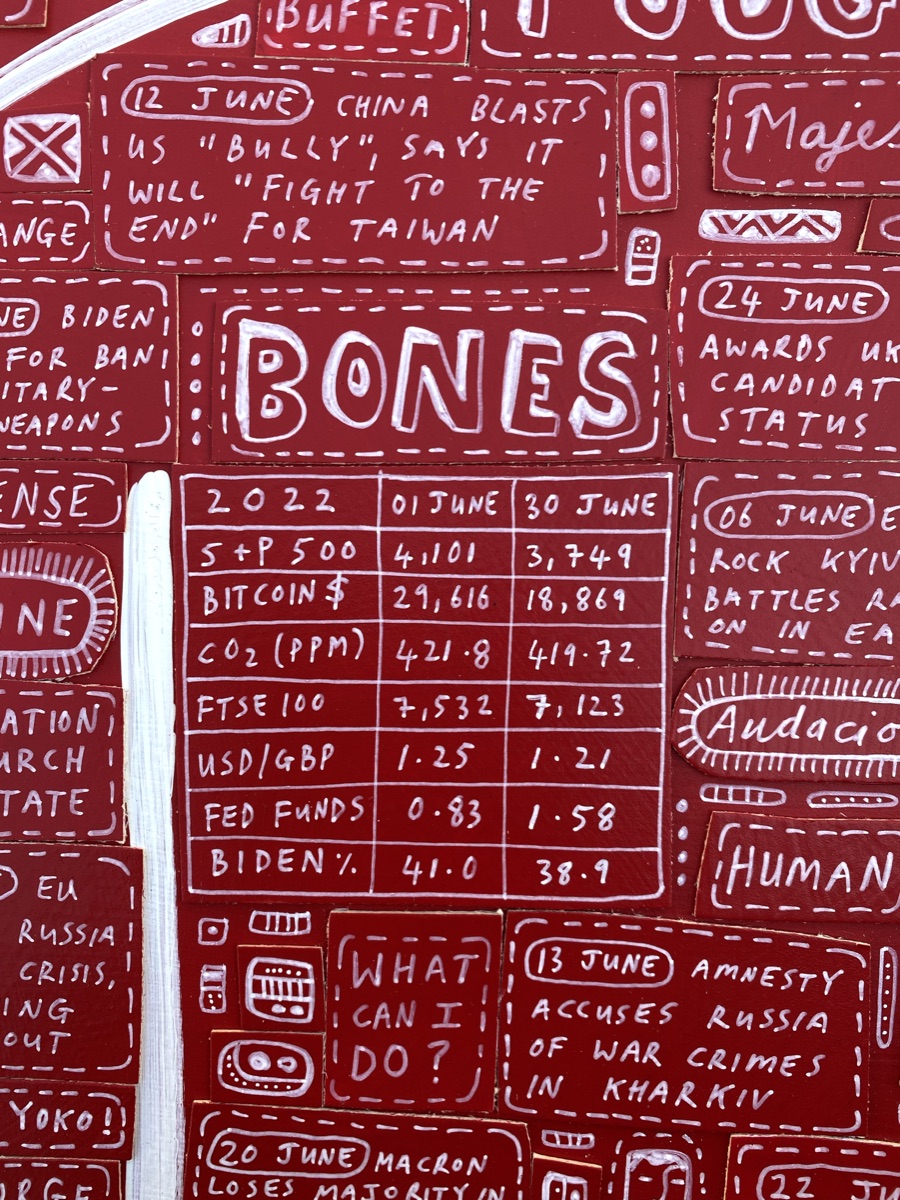 BUFFET
12 JUNE CHINA BLASTS
US "BULLY", SAYS IT
WILL "FIGHT TO THE
END" FOR TAIWAN
BIDEN
FOR BAN
ITARY-
WEAPONS
BONES
24 JUNE
AWARDS UK
CANDIDAT
STATUS
2022 01 JUNE 30 JUNE
S+P 500 4,101 3,749
BITCOIN $ 29,616 18,869
CO2 (PPM) 421.8 419.72
FTSE 100 7,532 7,123
USD/GBP 1.25 1.21
FED FUNDS 0.83 1.58
BIDEN % 41.0 38.9
ENSE
INE
ATION
URCH
TATE
EU
RUSSIA
CRISIS,
ING
OUT
YOKO!
06 JUNE E
ROCK KYIV
BATTLES RA
ON IN EA
Audacio
HUMAN
WHAT
CAN I
DO?
13 JUNE AMNESTY
ACCUSES RUSSIA
OF WAR CRIMES
IN KHARKIV
20 JUNE MACRON
LOSES MAJORITY IN
22 JU
Majes
ANGE